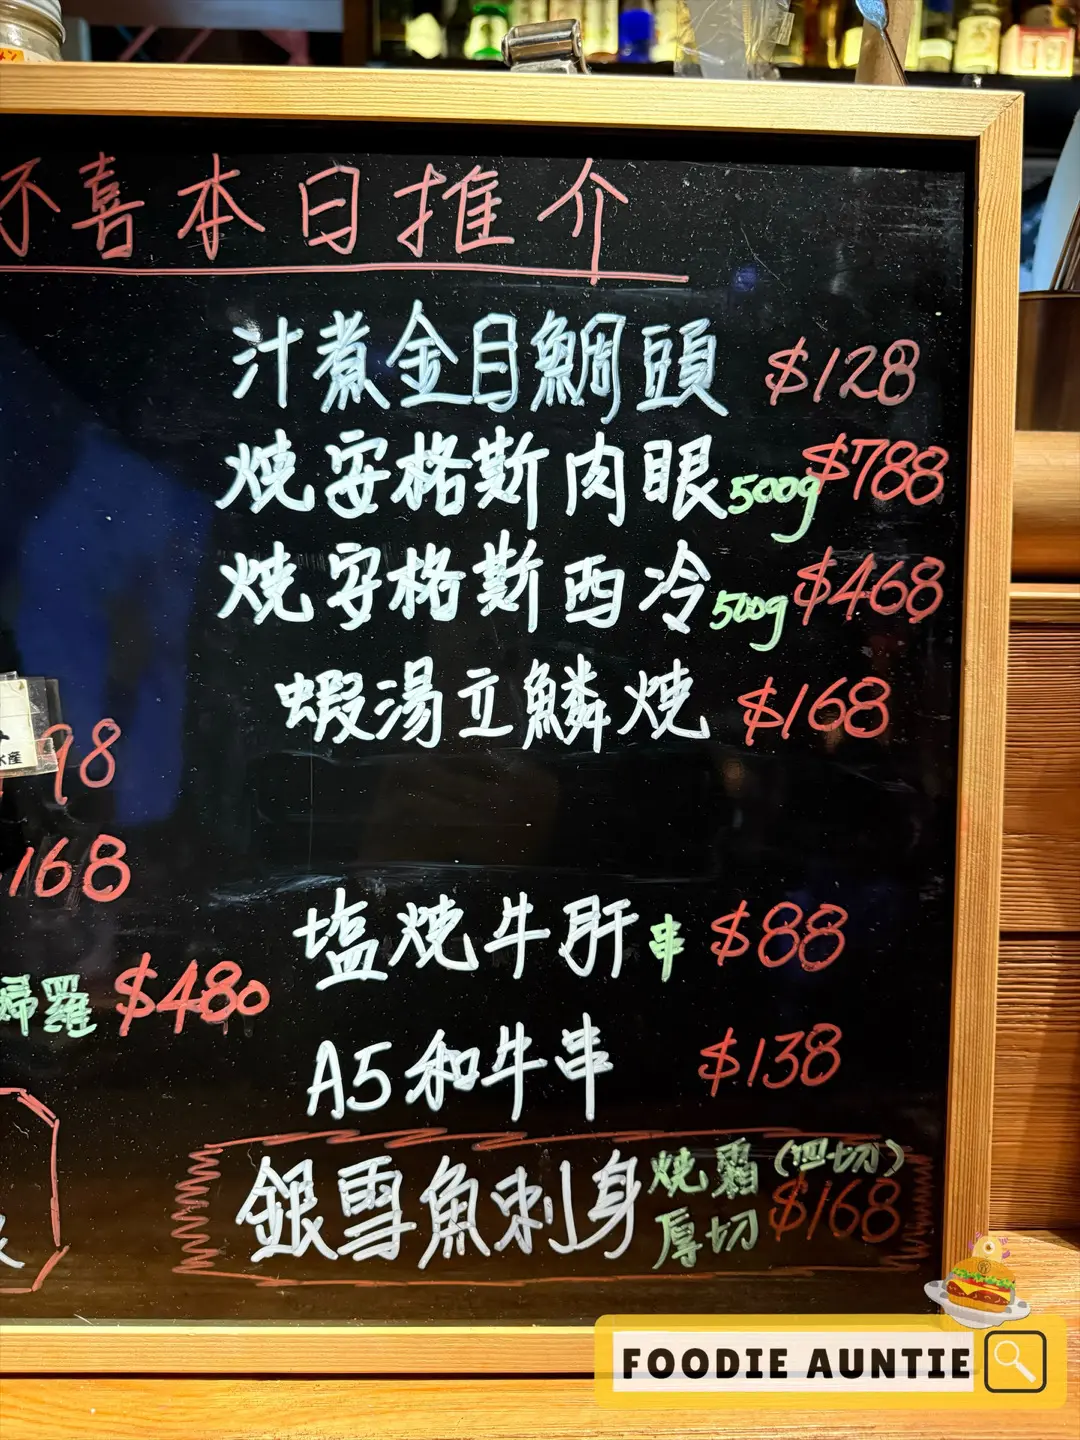 喜本日推介
汁煮金目鯛頭 $128
燒安格斯肉眼 500g $788
燒安格斯西冷 500g $468
蝦湯立鱗燒 $168
98
168
塩燒牛肝串 $88
歸羅 $480
A5和牛串 $138
銀雪魚刺身 燒霜 (四切)
厚切 $168
FOODIE AUNTIE